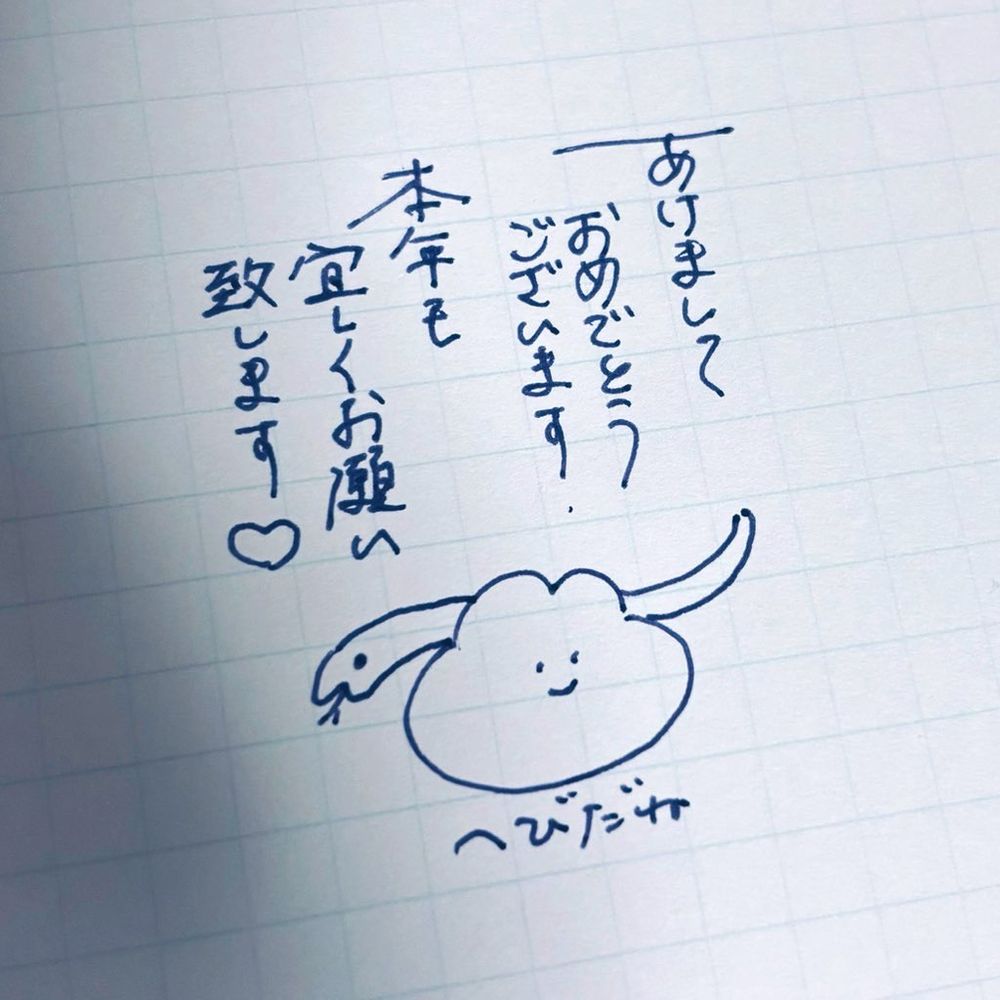 あけまして
おめでとう
ございます.
本年も
宜しくお願い
致します♡
へびだね